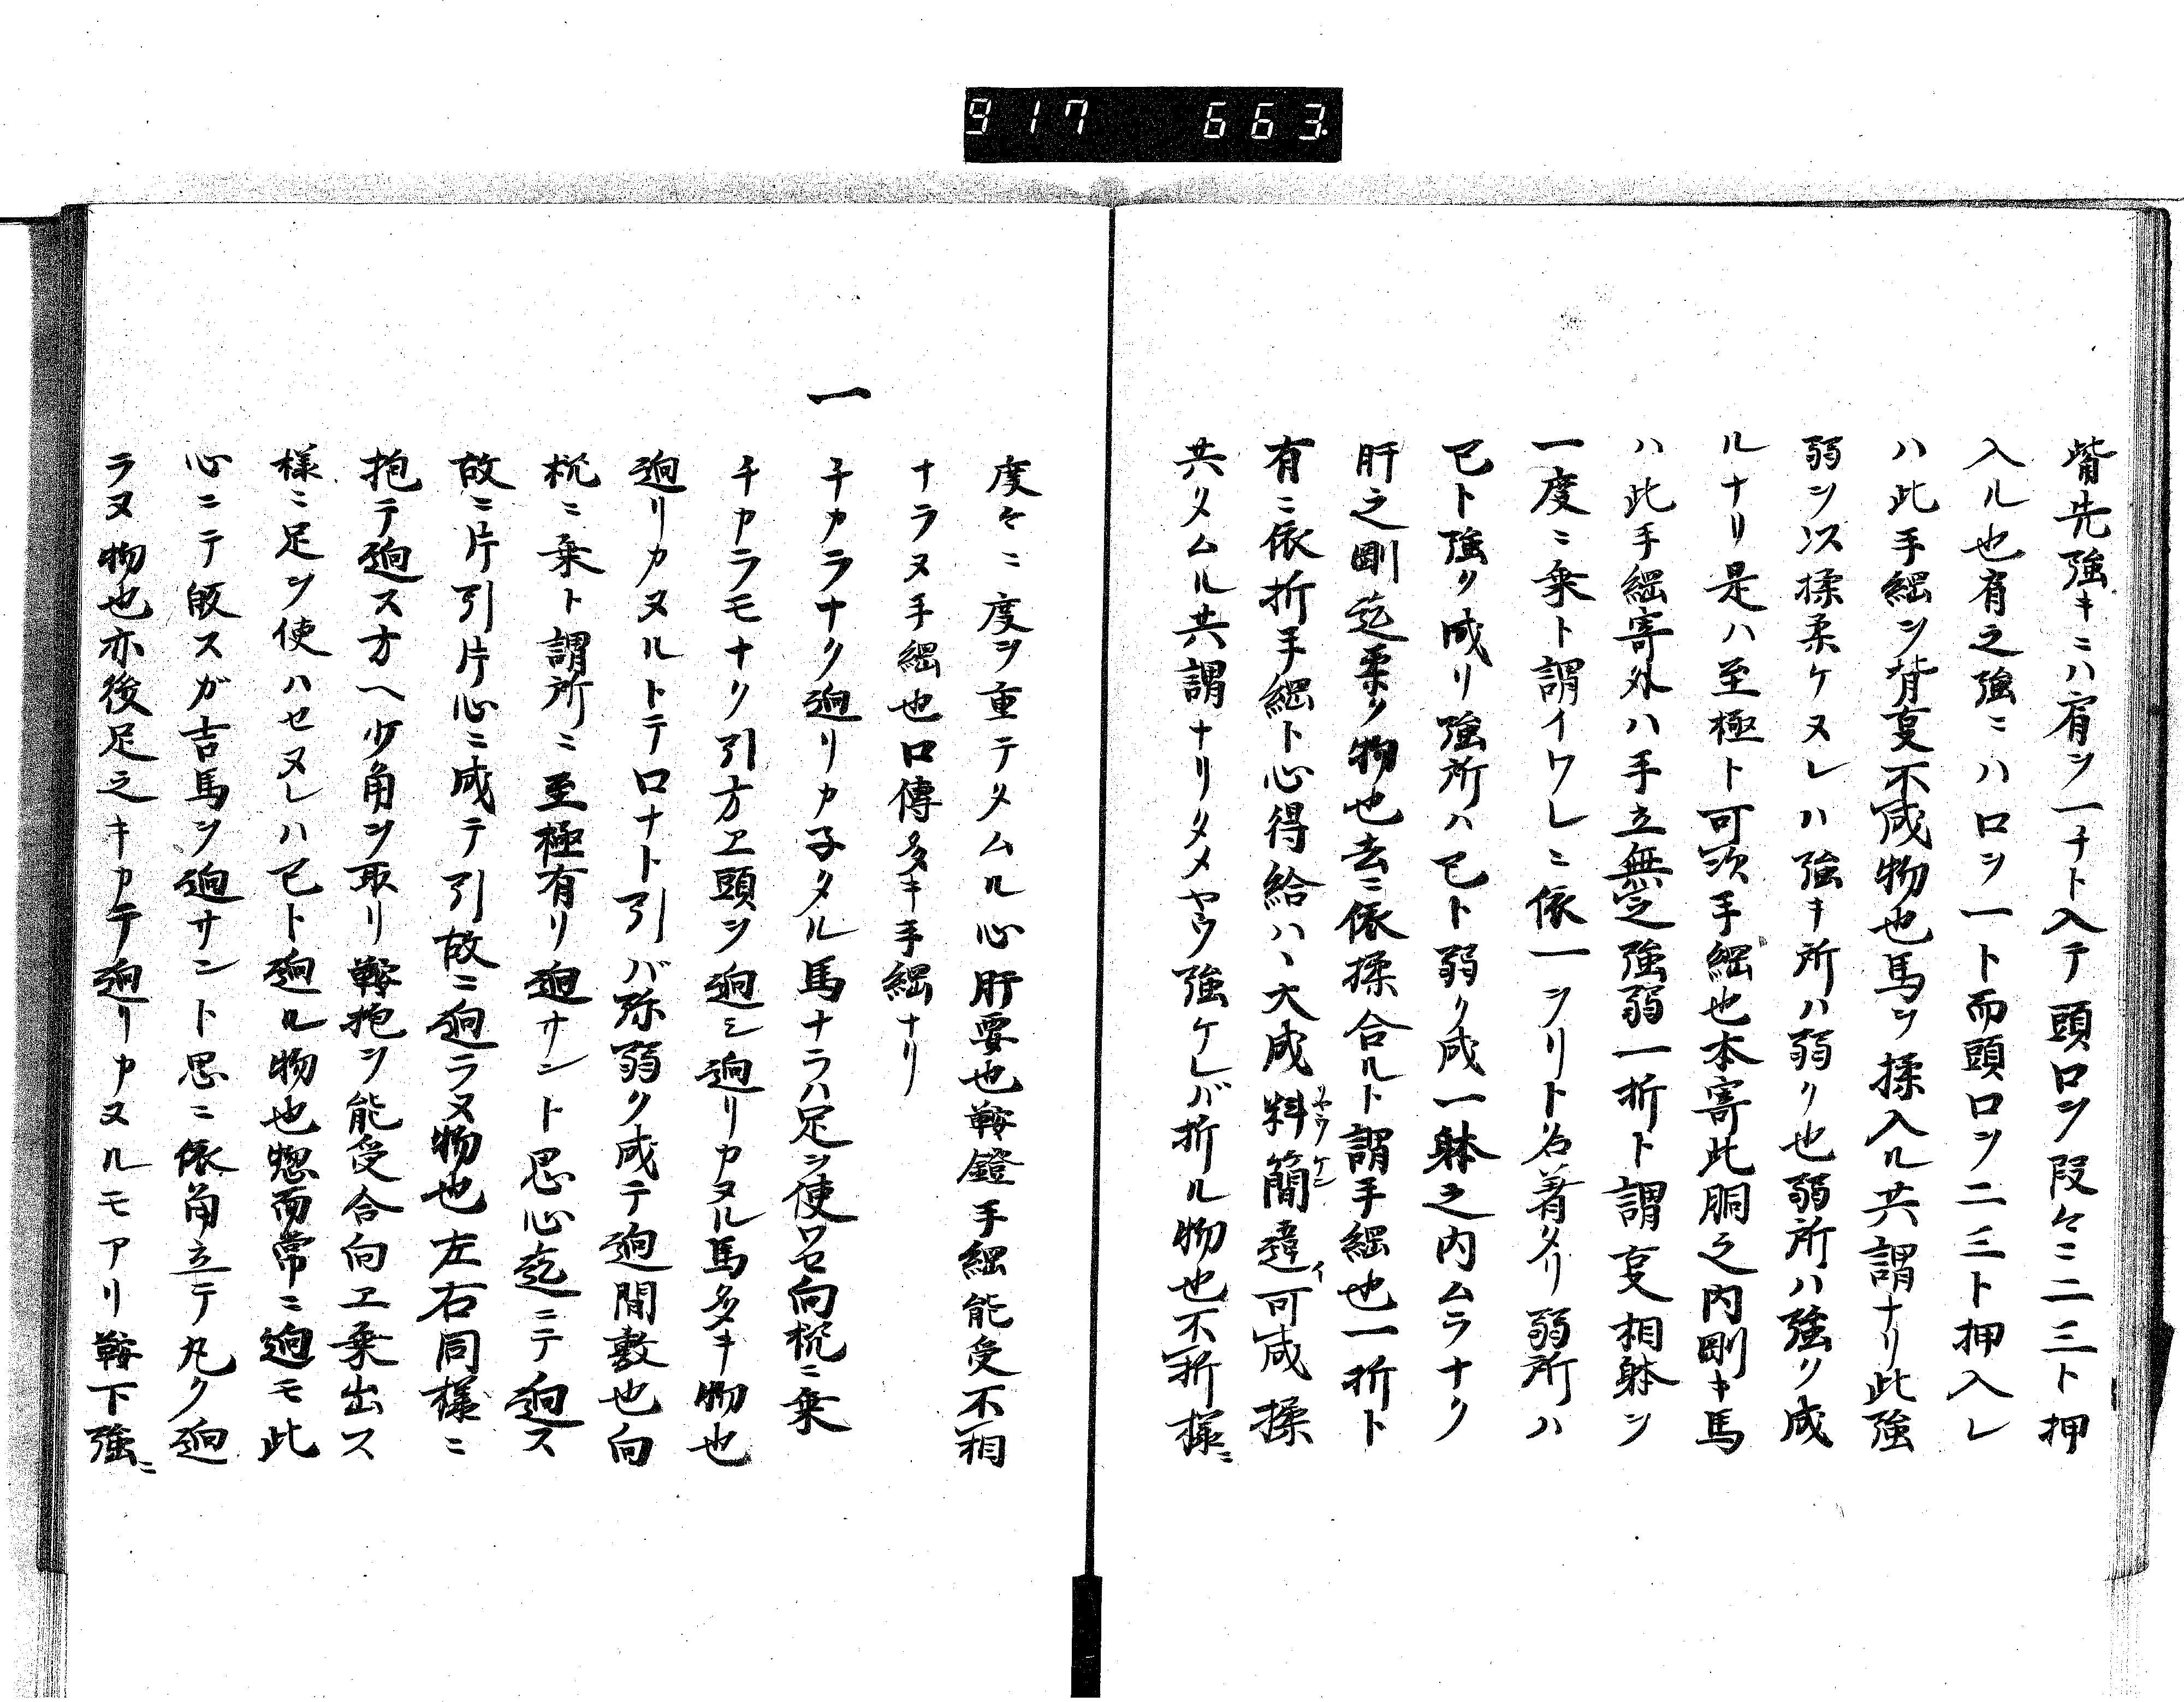 917 663.
觜先強キニハ肩ヲ一チト入テ頭口ヲ段々ニ二三ト押
入ル也有之強ニハ口ヲ一ト而頭口ヲ二三ト押入レ
ハ此手綱ヲ背夏不成物也馬ヲ揉入ル共謂ナリ此強
弱ヲ以揉柔ケヌレハ強キ所ハ弱ク也弱所ハ強ク成
ルナリ是ハ至極ト可次手綱也本寄此胴之内剛キ馬
ハ此手綱寄外ハ手立無之強弱一折ト謂夏相躰ヲ
一度ニ乗ト謂イワレニ依一ヲリト名着タリ弱所ハ
己ト強ク成リ強所ハ己ト弱ク成一躰之内ムラナク
肝之剛迄柔ク物也去ニ依揉合ルト謂手綱也一折ト
有ニ依折手綱ト心得給ハヽ大成料簡違可成揉
共タムル共謂ナリタメヤウ強ケレバ折ル物也不折様ニ
度々ニ度ヲ重テタムル心肝要也鞍鐙手綱能受不相
ナラヌ手綱也口傳多キ手綱ナリ
一 チカラナク廻リカ子タル馬ナラハ足ヲ使ワセ向枕ニ乗
チカラモナク引方エ頭ヲ廻シ廻リカヌル馬多キ物也
廻リカヌルトテロナト引バ弥弱ク成テ廻間敷也向
枕ニ乗ト謂所ニ至極有リ廻サント思心迄ニテ廻ス
故ニ片引片心ニ成テ引故ニ廻ラヌ物也左右同様ニ
抱テ廻ス方ヘ少角ヲ取リ鞍抱ヲ能受合向エ乗出ス
様ニ足ヲ使ハセヌレハ己ト廻ル物也惣而常ニ廻モ此
心ニテ皈スガ吉馬ヲ廻サント思ニ依角立テ丸ク廻
ラヌ物也亦後足之キカテ廻リカヌルモアリ鞍下強ニ